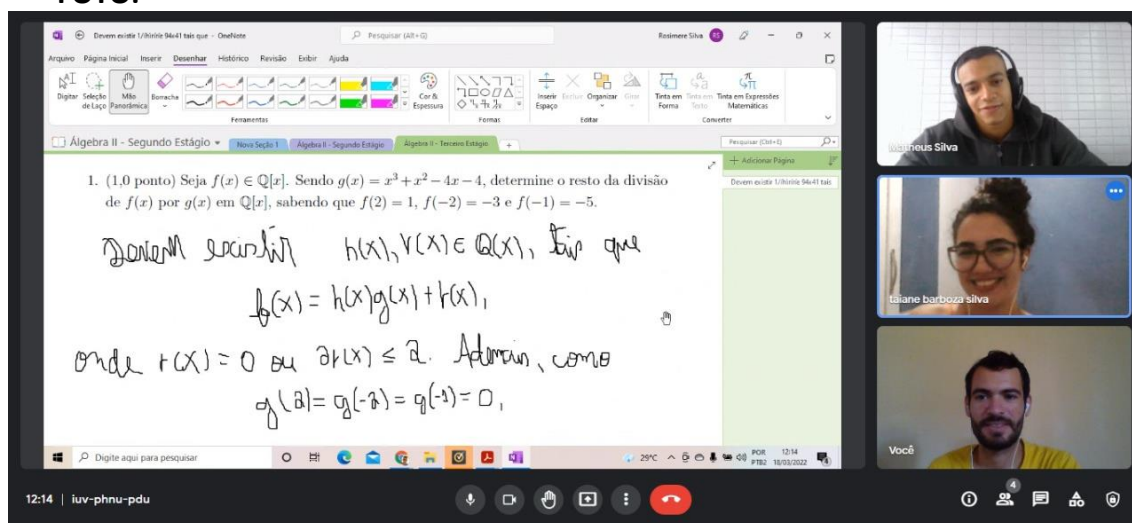 Devem existir 1/ihiririe 94x41 tais que - OneNote
Pesquisar (Alt+G)
Rosimere Silva RS
Arquivo Página Inicial Inserir Desenhar Histórico Revisão Exibir Ajuda
Digitar Seleção de Laço Mão Panorâmica Borracha
Cor & Espessura
Inserir Espaço Excluir Organizar Girar
Tinta em Forma Tinta em Texto Tinta em Expressões Matemáticas
Ferramentas Formas Editar Converter
Álgebra II - Segundo Estágio Nova Seção 1 Álgebra II - Segundo Estágio Álgebra II - Terceiro Estágio +
Pesquisar (Ctrl+E)
+ Adicionar Página
Devem existir 1/ihiririe 94x41 tais
1. (1,0 ponto) Seja f(x) ∈ ℚ[x]. Sendo g(x) = x³ + x² − 4x − 4, determine o resto da divisão
de f(x) por g(x) em ℚ[x], sabendo que f(2) = 1, f(−2) = −3 e f(−1) = −5.
Devem existir h(x), r(x) ∈ Q(x), tais que
f(x) = h(x)g(x) + r(x),
onde r(x) = 0 ou ∂r(x) ≤ 2. Ademais, como
g(2) = g(-2) = g(-1) = 0,
Matheus Silva
taiane barboza silva
Você
Digite aqui para pesquisar
29°C
POR
PTB2
12:14
18/03/2022
12:14 | iuv-phnu-pdu
4